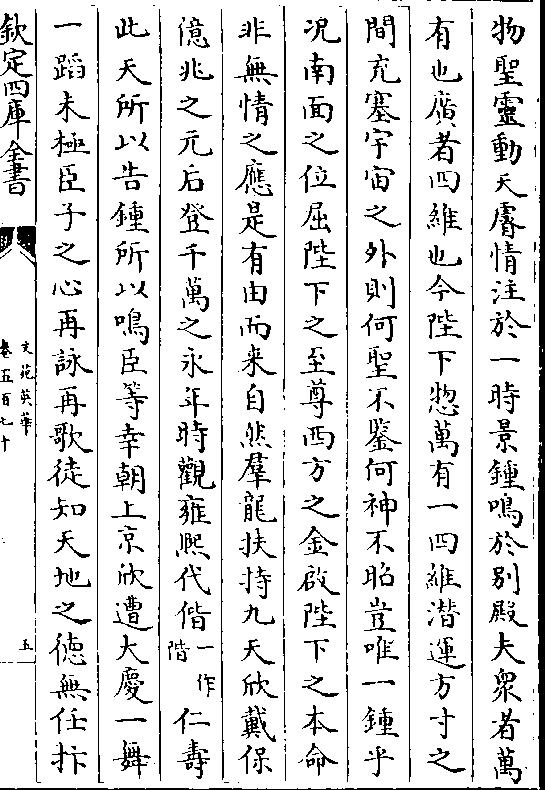 物聖靈動天睿情注於一時景鍾鳴於别殿夫衆者萬
有也廣者四維也今陛下惣萬有一四維潛運方寸之
間充塞宇宙之外則何聖不鑒何神不昭豈唯一鍾乎
况南面之位屈陛下之至尊西方之金啟陛下之本命
非無情之應是有由而来自然羣龍扶持九天欣戴保
億兆之元后登千萬之永年時觀雍熈代偕一作階仁壽
此天所以告鍾所以鳴臣等幸朝上京欣遭大慶一舞
一蹈未極臣子之心再詠再歌徒知天地之徳無任抃
欽定四庫全書
文苑英華
卷五百七十
五